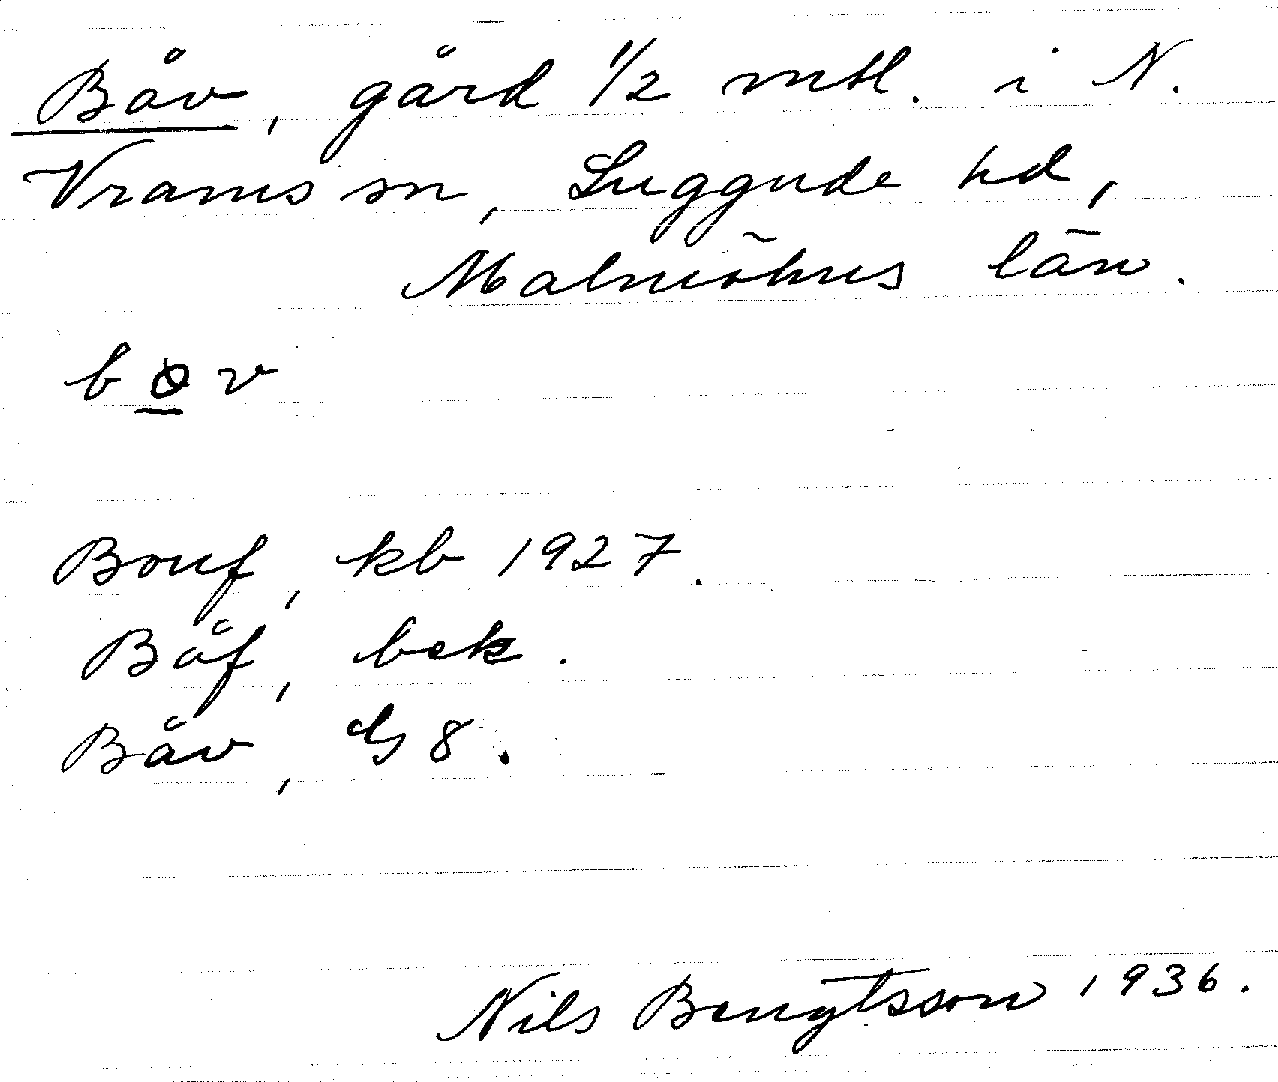 Båv, gård 1/2 mtl. i N.
Vrams sn, Luggude hd,
Malmöhus län.
bo̲v
Bouf, kb 1927.
Båf, bek.
Båv, G8.
Nils Bengtsson 1936.